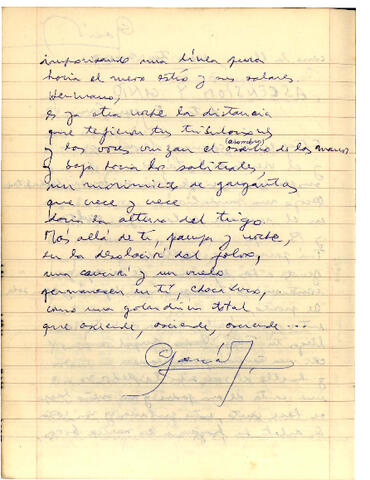 imponiendo una línea pura
hacia el nuevo estío y sus valores.
Hermano,
es ya otra noche la distancia
que tejieron tus tribulaciones
(asombro)
y las voces cruzan el de las manos
y baja hacia los salitrales,
un movimiento de gargantas
que crece y crece
hacia la altura del trigo.
Más allá de ti, pampa y noche,
en la desolación del polvo,
una canción y un vuelo
permanecen en ti,
como una golondrina total
que asciende, asciende, asciende...